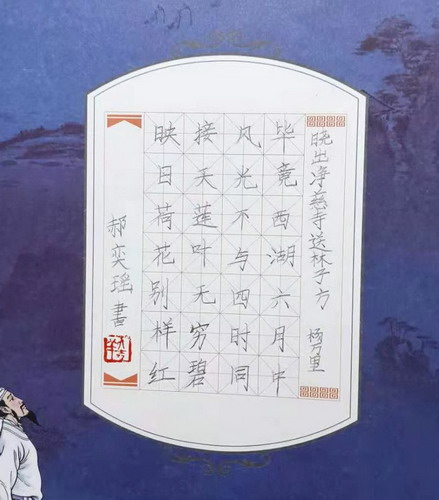 晓出净慈寺送林子方 杨万里
毕竟西湖六月中
风光不与四时同
接天莲叶无穷碧
映日荷花别样红
郝奕瑶書